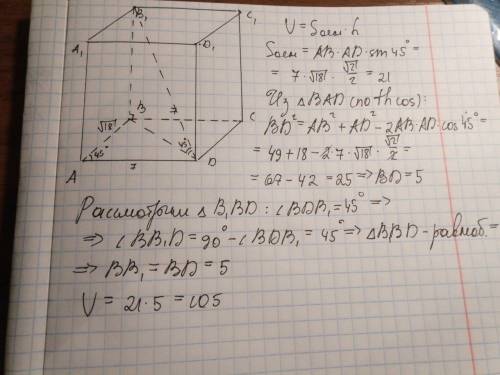 B₁ C₁
A₁ D₁
V = Sосн·h
Sосн = AB·AD·sin 45° =
= 7·√18·√2/2 = 21
Из △BAD (по th cos):
BD² = AB² + AD² − 2AB·AD·cos 45° =
= 49 + 18 − 2·7·√18·√2/2 =
= 67 − 42 = 25 ⇒ BD = 5
B 7 C
√18
45° 45°
A 7 D
Рассмотрим △ B₁BD : ∠BDB₁ = 45° ⇒
⇒ ∠BB₁D = 90° − ∠BDB₁ = 45° ⇒ △BBD − равноб. =
⇒ BB₁ = BD = 5
V = 21·5 = 105